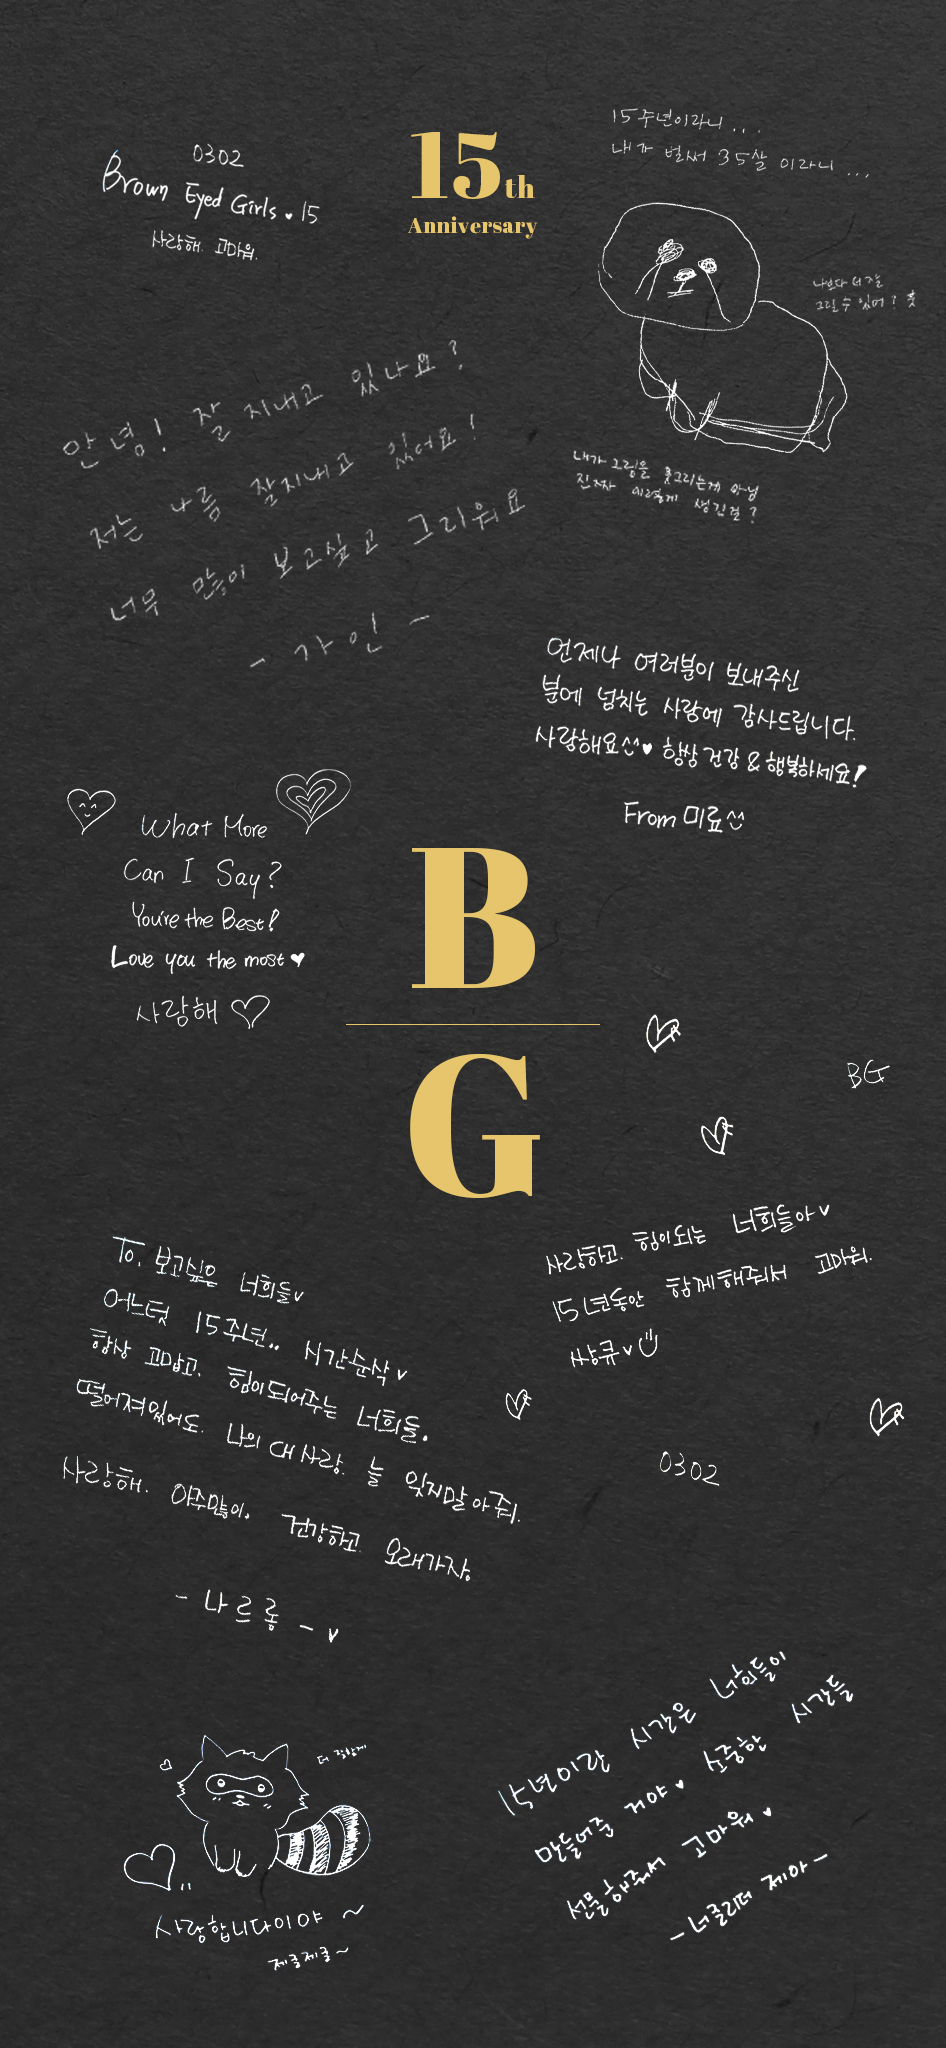 0302
Brown Eyed Girls ♥ 15
사랑해. 고마워.
15th
Anniversary
15주년이라니...
내가 벌써 35살 이라니...
나보다 더 잘
그릴 수 있어?
내가 그림을 못그리는게 아님
진짜 이렇게 생긴걸?
안녕! 잘 지내고 있나요?
저는 나름 잘지내고 있어요!
너무 많이 보고싶고 그리워요
- 가인 -
언제나 여러분이 보내주신
분에 넘치는 사랑에 감사드립니다.
사랑해요^^♥ 항상 건강 & 행복하세요!
From 미료^^
What More
Can I Say?
You're the Best!
Love you the most ♥
사랑해 ♡
B
G
BG
사랑하고. 힘이되는 너희들아♥
15년동안 함께해줘서 고마워.
쌍큐♥
To. 보고싶은 너희들♥
어느덧 15주년.. 시간순삭♥
항상 고맙고. 힘이되어주는 너희들.
떨어져있어도. 나의 대사랑. 늘 잊지말아줘.
사랑해. 아주많이. 건강하고. 오래가자.
- 나르롱 - ♥
0302
더 잘할게
사랑합니다이야 ~
제글제글~
15년이란 시간은 너희들이
만들어준 거야♥ 소중한 시간들
선물해줘서 고마워♥
- 너클리더 제아 -